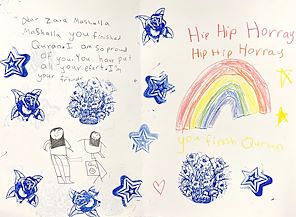 Dear Zara Mashalla
Mashalla you finished
Quran. I am so proud
of you. You have put
all your efort. I'm
your friend
Hip Hip Horray
Hip Hip Horray
you finish Quran